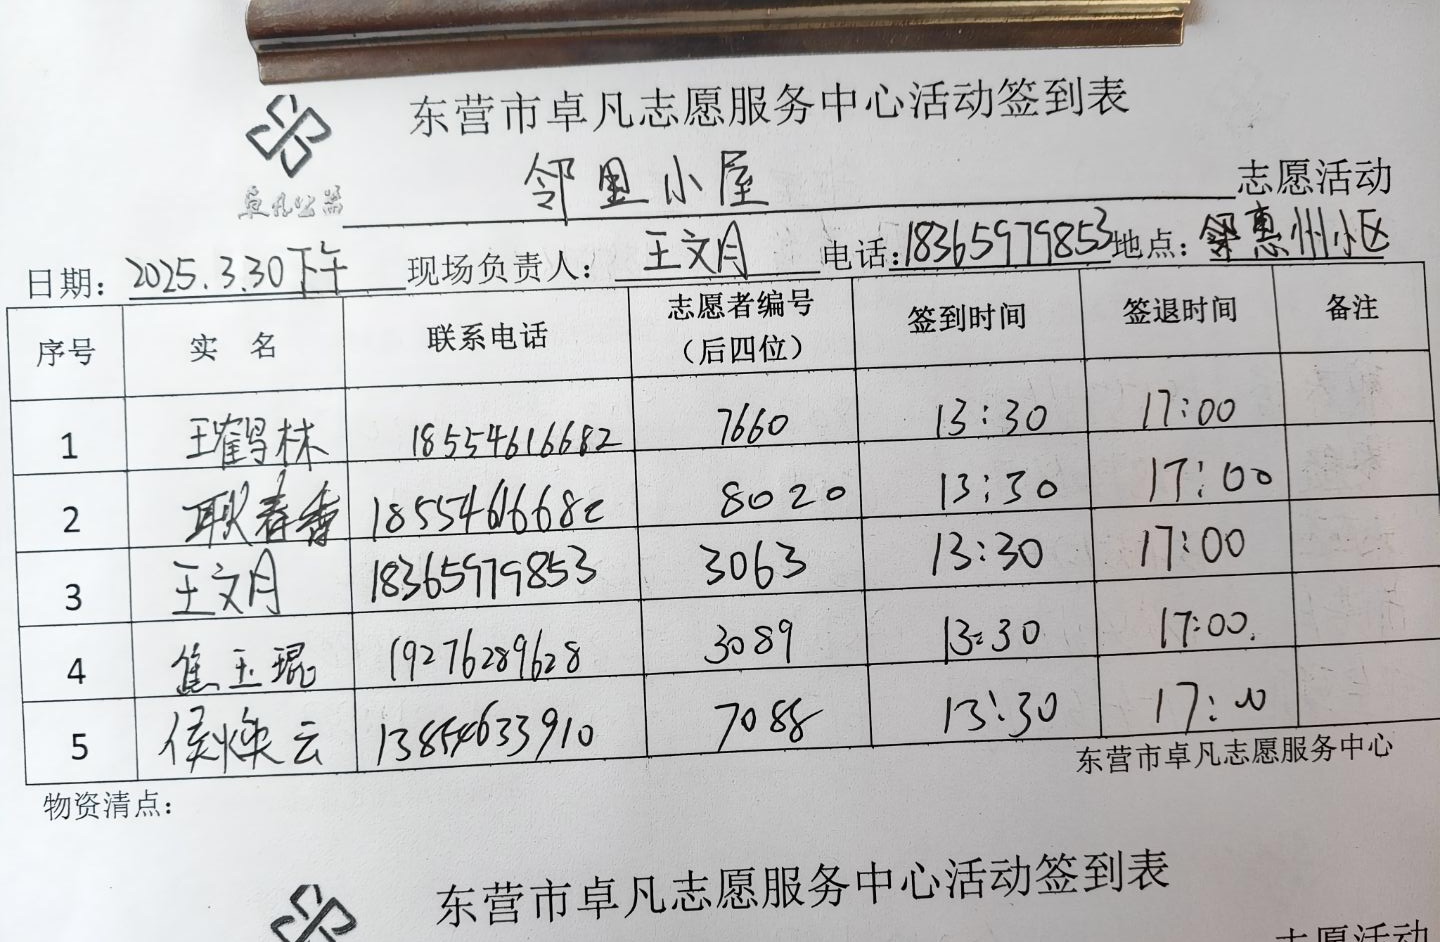 东营市卓凡志愿服务中心活动签到表
邻里小屋 志愿活动
卓凡公益
日期：2025.3.30下午 现场负责人：王文月 电话：18365979853 地点：惠州小区
序号 实 名 联系电话 志愿者编号（后四位） 签到时间 签退时间 备注
1 王鹤林 18554616682 7660 13:30 17:00
2 耿春香 18554616682 8020 13:30 17:00
3 王文月 18365979853 3063 13:30 17:00
4 焦玉琨 19276289628 3089 13:30 17:00.
5 侯焕云 13854633910 7088 13:30 17:00
东营市卓凡志愿服务中心
物资清点：
东营市卓凡志愿服务中心活动签到表
志愿活动